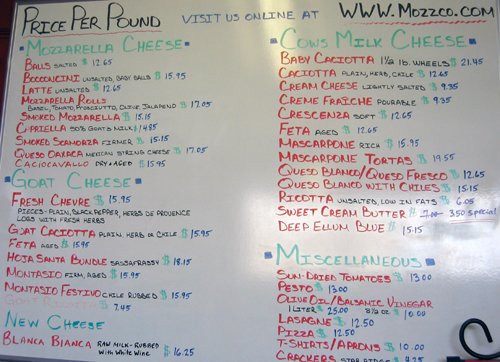 Price Per Pound
VISIT US ONLINE AT
WWW.MOZZCO.COM
Mozzarella Cheese
Balls SALTED $ 12.65
Bocconcini UNSALTED, BABY BALLS $ 15.95
Latte UNSALTED $ 12.65
Mozzarella Rolls
BASIL, TOMATO, PROSCIUTTO, OLIVE, JALAPENO $ 17.05
Smoked Mozzarella $ 15.15
Capriella 50% GOAT'S MILK / 14.85
Smoked Scamorza FIRMER $ 15.15
Queso Oaxaca MEXICAN STRING CHEESE $ 17.05
Caciocavallo DRY & AGED $ 15.95
Goat Cheese
Fresh Chevre $ 15.95
PIECES - PLAIN, BLACK PEPPER, HERBS DE PROVENCE
LOGS WITH FRESH HERBS
Goat Caciotta PLAIN, HERB OR CHILE $ 15.95
Feta AGED $ 15.95
Hoja Santa Bundle SASSAFRASSY $ 18.15
Montasio FIRM, AGED $ 15.95
Montasio Festivo CHILE RUBBED $ 15.95
Goat Ricotta $ 7.45
New Cheese
Blanca Bianca RAW MILK - RUBBED with White Wine $ 16.25
Cows Milk Cheese
Baby Caciotta 1 1/2 lb. WHEELS $ 21.45
Caciotta PLAIN, HERB, CHILE $ 12.65
Cream Cheese LIGHTLY SALTED $ 9.35
Creme Fraîche POURABLE $ 9.35
Crescenza SOFT $ 12.65
Feta AGED $ 12.65
Mascarpone RICH $ 15.95
Mascarpone Tortas $ 19.55
Queso Blanco/Queso Fresco $ 12.65
Queso Blanco with Chiles $ 15.15
Ricotta UNSALTED, LOW IN FATS $ 6.05
Sweet Cream Butter $ 7.00 3.50 Special
Deep Ellum Blue $ 15.15
Miscellaneous
Sun-Dried Tomatoes $ 13.00
Pesto $ 13.00
Olive Oil/Balsamic Vinegar
1 LITER $ 25.00 8 1/2 oz $ 10.00
Lasagne $ 12.50
Pizza $ 12.50
T-Shirts/Aprons $ 10.00
Crackers